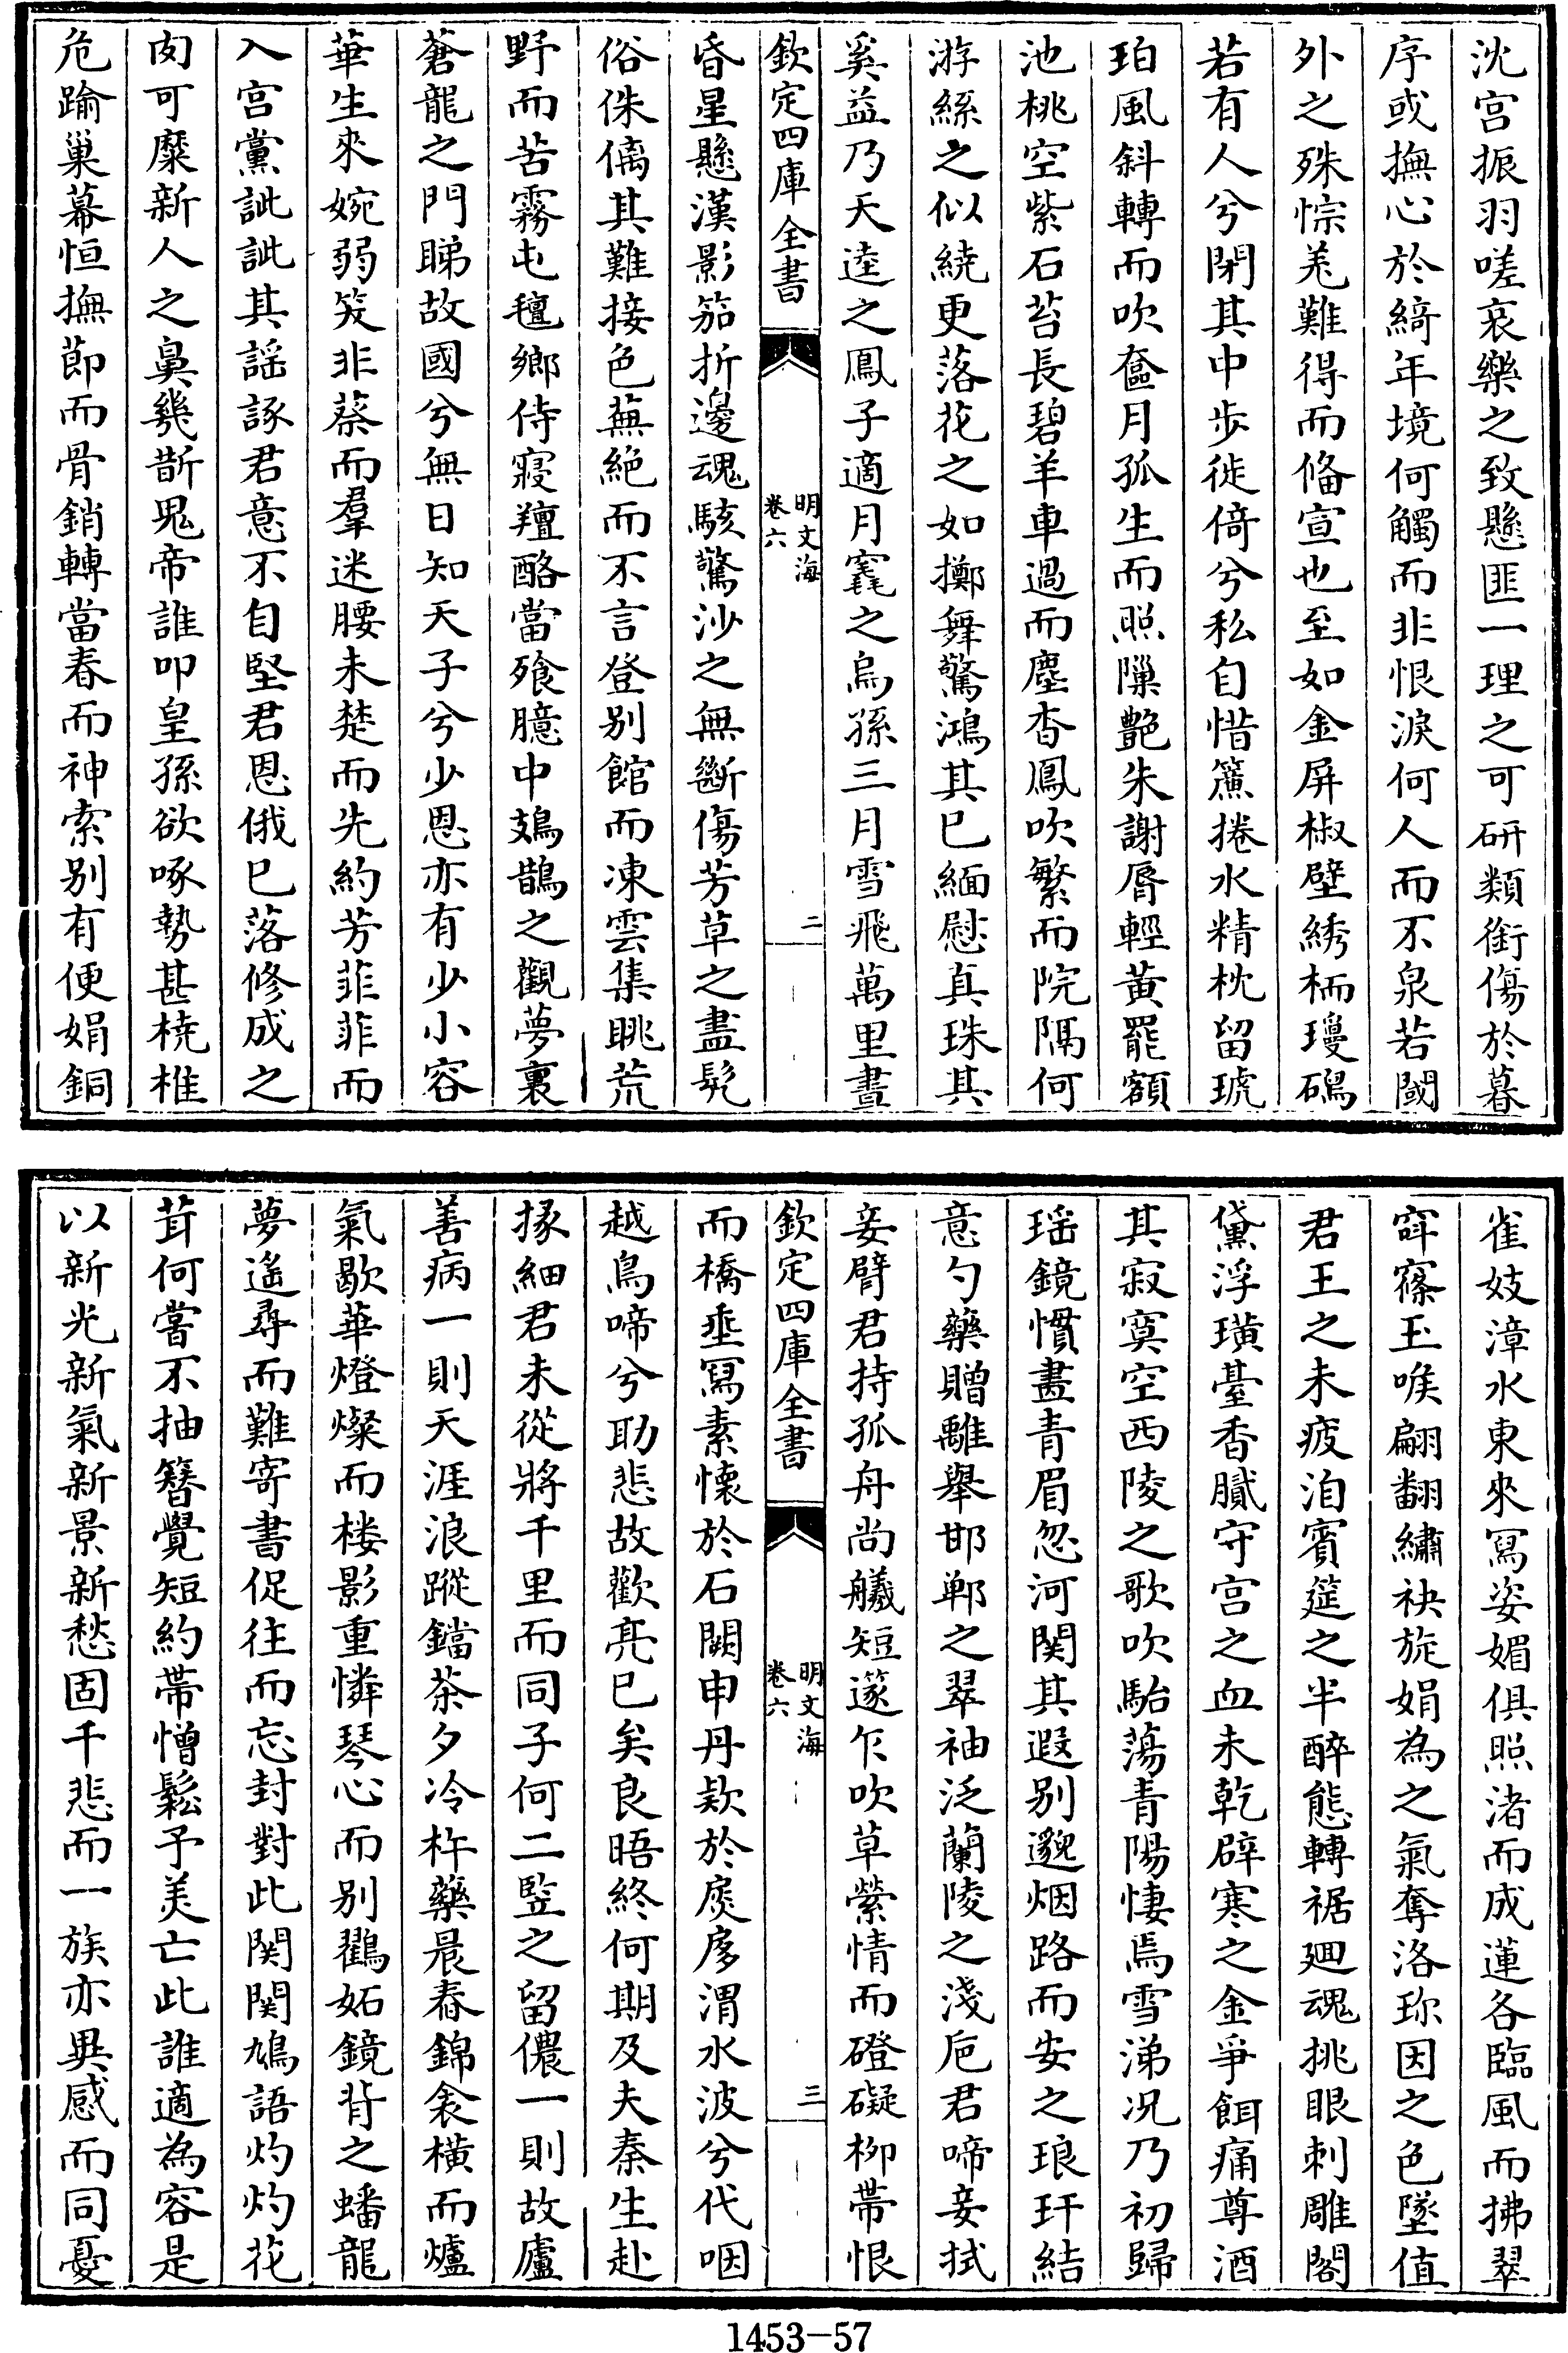 沈宫振羽嗟哀樂之致懸匪一理之可研類銜傷於暮
序或撫心於綺年境何觸而非恨淚何人而不泉若閾
外之殊悰羌難得而俻宣也至如金屏椒壁綉栭瓊磶
若有人兮閉其中步徙倚兮私自惜簾捲水精枕留琥
珀風斜轉而吹奩月孤生而照隟艷朱謝脣輕黄罷額
池桃空紫石苔長碧羊車過而塵杳鳳吹繁而院隔何
游絲之似繞更落花之如擲舞驚鴻其已緬慰真珠其
奚益乃天逵之鳳子適月竁之烏孫三月雪飛萬里晝
欽定四庫全書
明文海
卷六
二
昏星懸漢影笳折邊魂駭驚沙之無斷傷芳草之盡髠
俗侏㒧其難接色蕪絶而不言登别館而凍雲集眺荒
野而苦霧屯氊鄉侍寢羶酪當飱臆中鳷鵲之觀夢裏
蒼龍之門睇故國兮無日知天子兮少恩亦有少小容
華生來婉弱笑非蔡而羣迷腰未楚而先約芳菲菲而
入宫黨訿訿其謡諑君意不自堅君恩俄已落修成之
肉可縻新人之鼻幾斮鬼帝誰叩皇孫欲啄勢甚椀椎
危踰巢幕恒撫節而骨銷轉當春而神索别有便娟銅
雀妓漳水東來冩姿媚俱照渚而成蓮各臨風而拂翠
窣窱玉喉翩翻繡袂旋娟為之氣奪洛珎因之色墜值
君王之未疲洎賓筵之半醉態轉裾廻魂挑眼刺雕閣
黛浮璜臺香膩守宫之血未乾辟寒之金爭餌痛尊酒
其寂寞空西陵之歌吹駘蕩青陽悽焉雪涕况乃初歸
瑶鏡慣畫青眉忽河関其遐别邈烟路而安之琅玕結
意勺藥贈離舉邯鄲之翠袖泛蘭陵之淺巵君啼妾拭
妾臂君持孤舟尚艤短篴乍吹草縈情而磴礙柳帶恨
欽定四庫全書
明文海
卷六
三
而橋垂冩素懷於石闕申丹欵於扊扅渭水波兮代咽
越鳥啼兮助悲故歡亮已矣良晤終何期及夫秦生赴
掾細君未從將千里而同子何二竪之留儂一則故廬
善病一則天涯浪蹤鐺茶夕冷杵藥晨舂錦衾横而爐
氣歇華燈燦而楼影重憐琴心而别鸛妬鏡背之蟠龍
夢遙尋而難寄書促往而忘封對此関関鳩語灼灼花
茸何嘗不抽簪覺短約帶憎鬆予美亡此誰適為容是
以新光新氣新景新愁固千悲而一族亦異感而同憂
1453-57